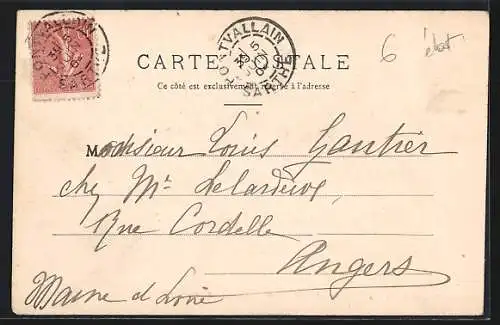 PONTVALLAIN
SARTHE
6 état
CARTE POSTALE
Ce côté est exclusivement réservé à l'adresse
Monsieur Louis Gautier
chez Mr
Rue Cordelle
Angers
Maine et Loire